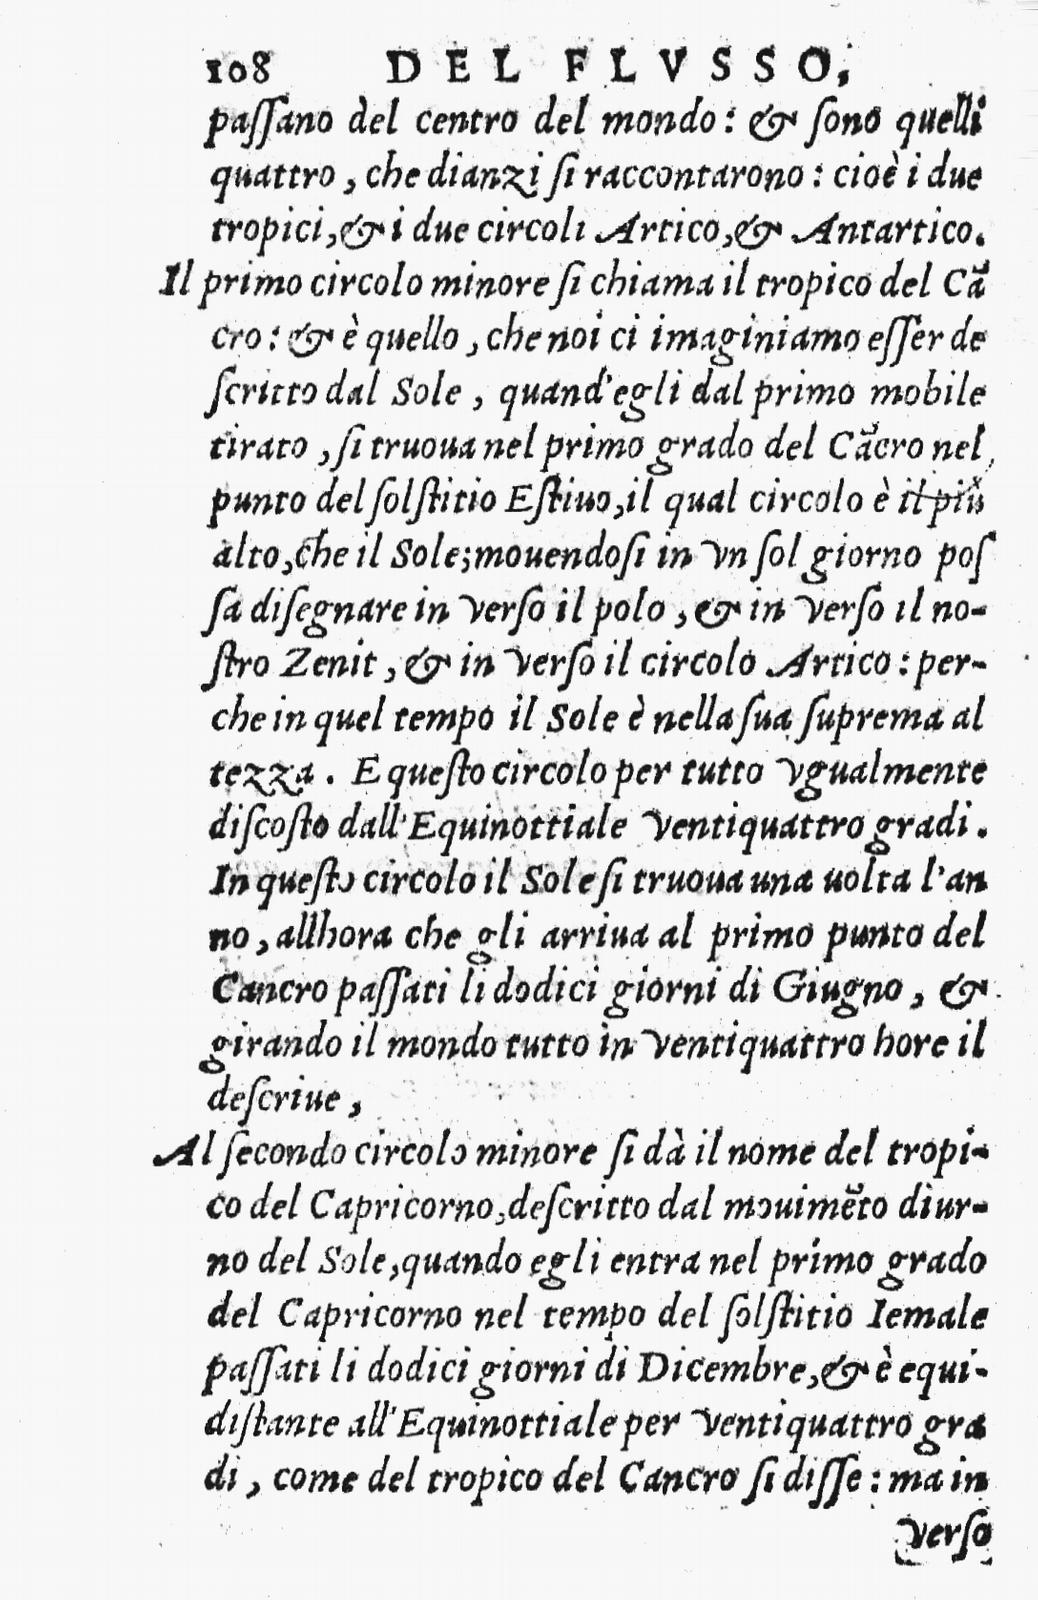 108 DEL FLVSSO,
paſſano del centro del mondo: & ſono quelli
quattro, che dianzi ſi raccontarono: cioè i due
tropici, & i due circoli Artico, & Antartico.
Il primo circolo minore ſi chiama il tropico del Cã
cro: & è quello, che noi ci imaginiamo eſſer de
ſcritto dal Sole, quand'egli dal primo mobile
tirato, ſi truoua nel primo grado del Cãcro nel
punto del ſolſtitio Eſtiuo, il qual circolo è il più
alto, che il Sole; mouendoſi in vn ſol giorno poſ
ſa diſegnare in verſo il polo, & in verſo il no-
ſtro Zenit, & in verſo il circolo Artico: per-
che in quel tempo il Sole è nella ſua ſuprema al
tezza. E queſto circolo per tutto vgualmente
diſcoſto dall'Equinottiale ventiquattro gradi.
In queſto circolo il Sole ſi truoua una uolta l'an
no, allhora che gli arriua al primo punto del
Cancro paſſati li dodici giorni di Giugno, &
girando il mondo tutto in ventiquattro hore il
deſcriue,
Al ſecondo circolo minore ſi dà il nome del tropi-
co del Capricorno, deſcritto dal mouimẽto diur-
no del Sole, quando egli entra nel primo grado
del Capricorno nel tempo del ſolſtitio Iemale
paſſati li dodici giorni di Dicembre, & è equi-
diſtante all'Equinottiale per ventiquattro gra
di, come del tropico del Cancro ſi diſſe: ma in
verſo